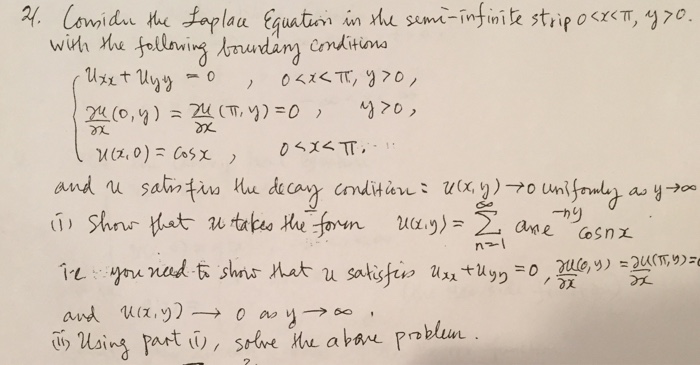 21. Consider the Laplace Equation in the semi-infinite strip 0<x<π, y>0.
with the following boundary conditions
{ u_xx + u_yy = 0 , 0<x<π, y>0,
∂u/∂x (0,y) = ∂u/∂x (π,y) = 0 , y>0,
u(x,0) = cos x , 0<x<π.
and u satisfies the decay condition : u(x,y) → 0 uniformly as y→∞
(i) Show that u takes the form u(x,y) = ∑_{n=1}^{∞} a_n e^{-ny} cos nx
i.e you need to show that u satisfies u_xx + u_yy = 0, ∂u/∂x (0,y) = ∂u/∂x (π,y) =
and u(x,y) → 0 as y → ∞.
(ii) Using part (i), solve the above problem.